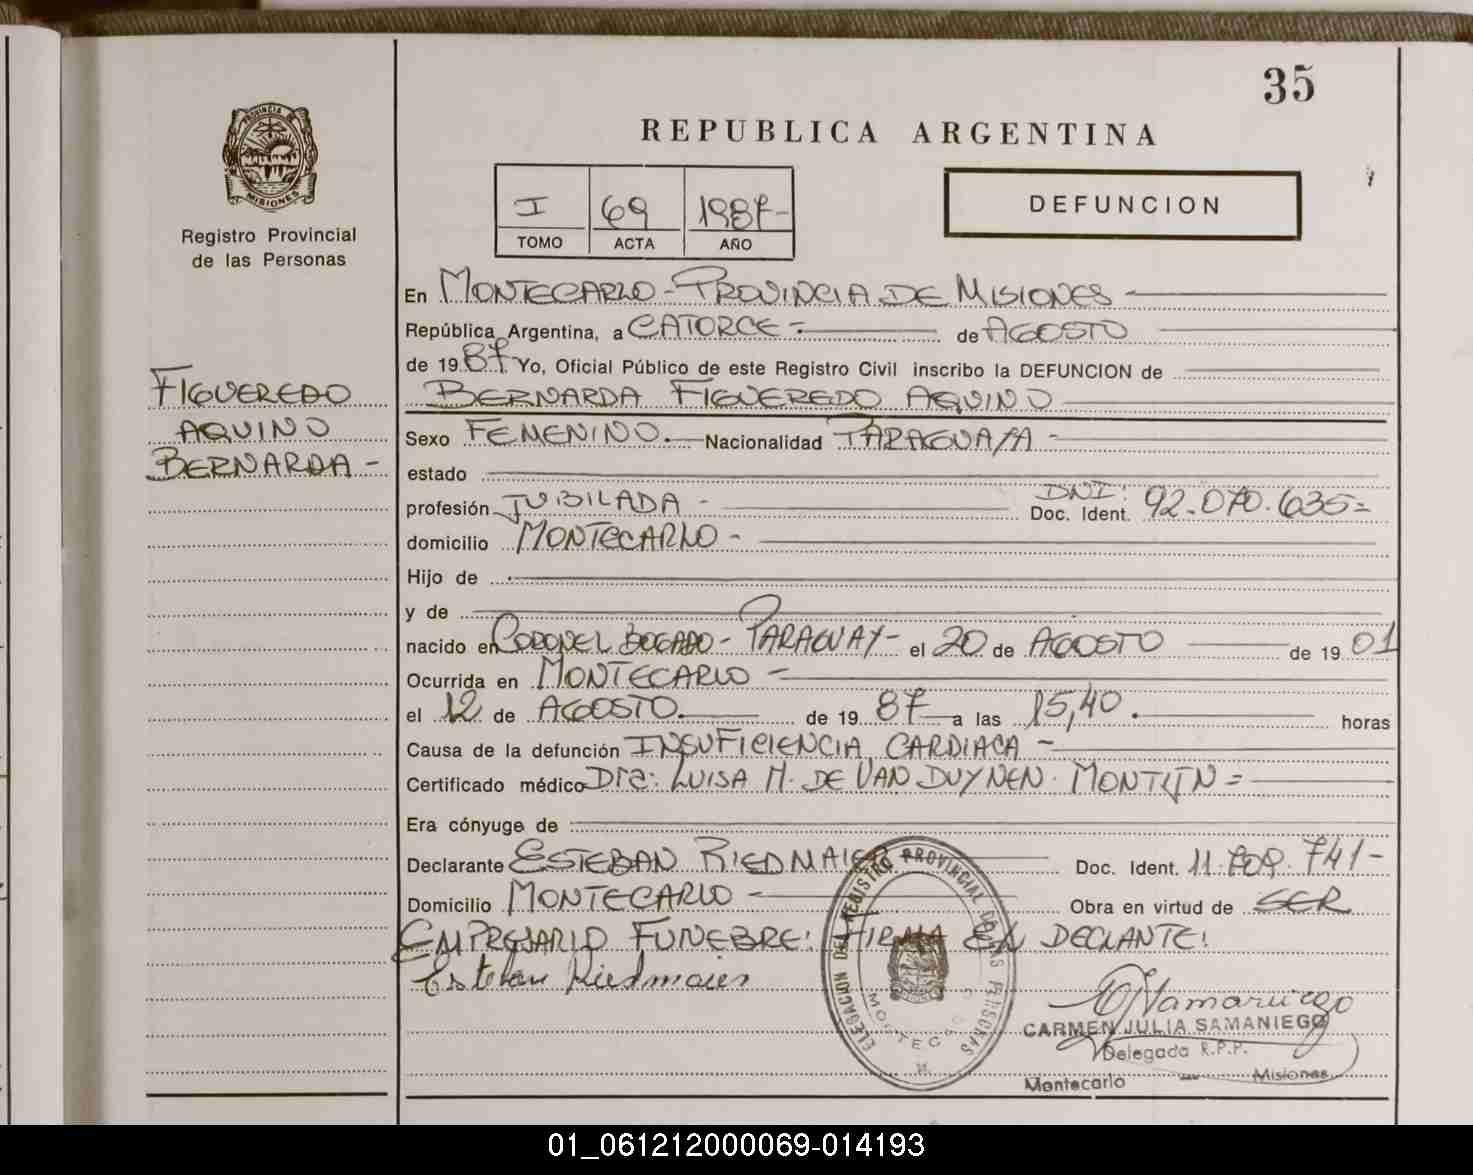 35
REPUBLICA ARGENTINA
PROVINCIA DE
MISIONES
Registro Provincial
de las Personas
I 69 1987-
TOMO ACTA AÑO
DEFUNCION
En MONTECARLO - PROVINCIA DE MISIONES -
República Argentina, a CATORCE - de AGOSTO
de 1987. Yo, Oficial Público de este Registro Civil inscribo la DEFUNCION de
BERNARDA FIGUEREDO AQUINO
FIGUEREDO
AQUINO
BERNARDA -
Sexo FEMENINO. - Nacionalidad PARAGUAYA -
estado
profesión JUBILADA - DNI: Doc. Ident. 92.070.635=
domicilio MONTECARLO -
Hijo de
y de
nacido en CORONEL BOGADO - PARAGUAY - el 20 de AGOSTO de 1901
Ocurrida en MONTECARLO -
el 12 de AGOSTO. de 1987 a las 15,40. horas
Causa de la defunción INSUFICIENCIA CARDIACA -
Certificado médico DRA: LUISA M. DE VAN DUYNEN MONTIJN =
Era cónyuge de
Declarante ESTEBAN RIEDMAIER Doc. Ident. 11.709.741-
Domicilio MONTECARLO - Obra en virtud de SER
EMPRESARIO FUNEBRE: FIRMA EL DECLANTE:
Esteban Riedmaier
DELEGACION DEL REGISTRO PROVINCIAL DE LAS PERSONAS
MONTECARLO
CARMEN JULIA SAMANIEGO
Delegada R.P.P.
Montecarlo - Misiones
01_061212000069-014193